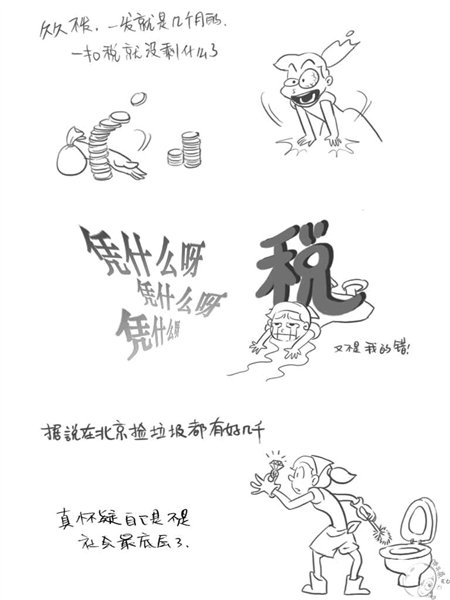 久久不发，一发就是几个月的，
一扣税就没剩什么了
凭什么呀
凭什么呀
凭什么呀
税
又不是我的错！
据說在北京捡垃圾都有好几千
真怀疑自己是不是
社会最底层了．